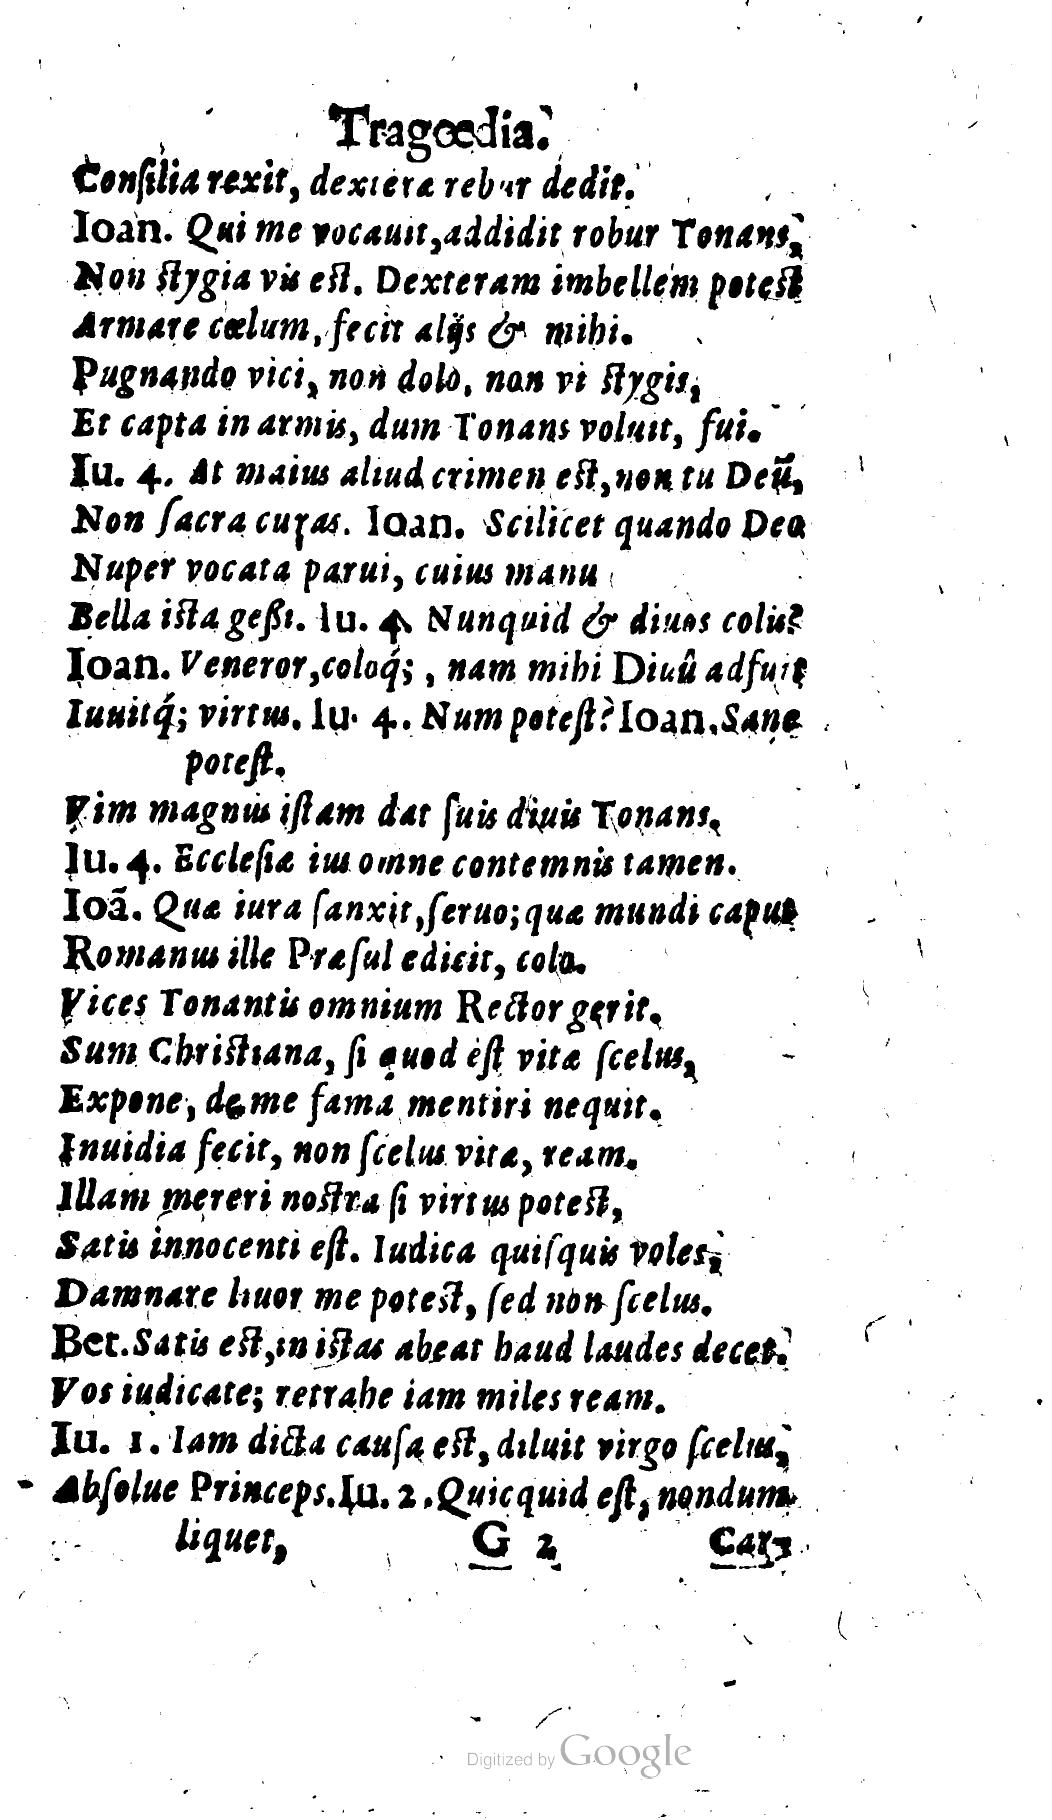 Tragœdia.
Conſilia rexit, dexteræ robur dedit.
Ioan. Qui me vocauit, addidit robur Tonans,
Non ſtygia vis eſt. Dexteram imbellem poteſt
Armare cœlum, fecit alijs & mihi.
Pugnando vici, non dolo, non vi ſtygis,
Et capta in armis, dum Tonans voluit, fui.
Iu. 4. At maius aliud crimen eſt, non tu Deũ,
Non ſacra curas. Ioan. Scilicet quando Deo
Nuper vocata parui, cuius manu
Bella iſta geßi. Iu. 4. Nunquid & diuos colis?
Ioan. Veneror, coloq́;, nam mihi Diuû adfuit
Iuuitq́; virtus. Iu. 4. Num poteſt? Ioan. Sane
poteſt.
Vim magnus iſtam dat ſuis diuis Tonans.
Iu. 4. Eccleſiæ ius omne contemnis tamen.
Ioã. Quæ iura ſanxit, ſeruo; quæ mundi caput
Romanus ille Præſul edicit, colo.
Vices Tonantis omnium Rector gerit.
Sum Chriſtiana, ſi quod eſt vitæ ſcelus,
Expone, de me fama mentiri nequit.
Inuidia fecit, non ſcelus vitæ, ream.
Illam mereri noſtra ſi virtus poteſt,
Satis innocenti eſt. Iudica quiſquis voles,
Damnare liuor me poteſt, ſed non ſcelus.
Bet. Satis eſt, in iſtas abeat haud laudes decet.
Vos iudicate; retrahe iam miles ream.
Iu. 1. Iam dicta cauſa eſt, diluit virgo ſcelus,
Abſolue Princeps. Iu. 2. Quicquid eſt, nondum
liquet, G 2
Digitized by Google